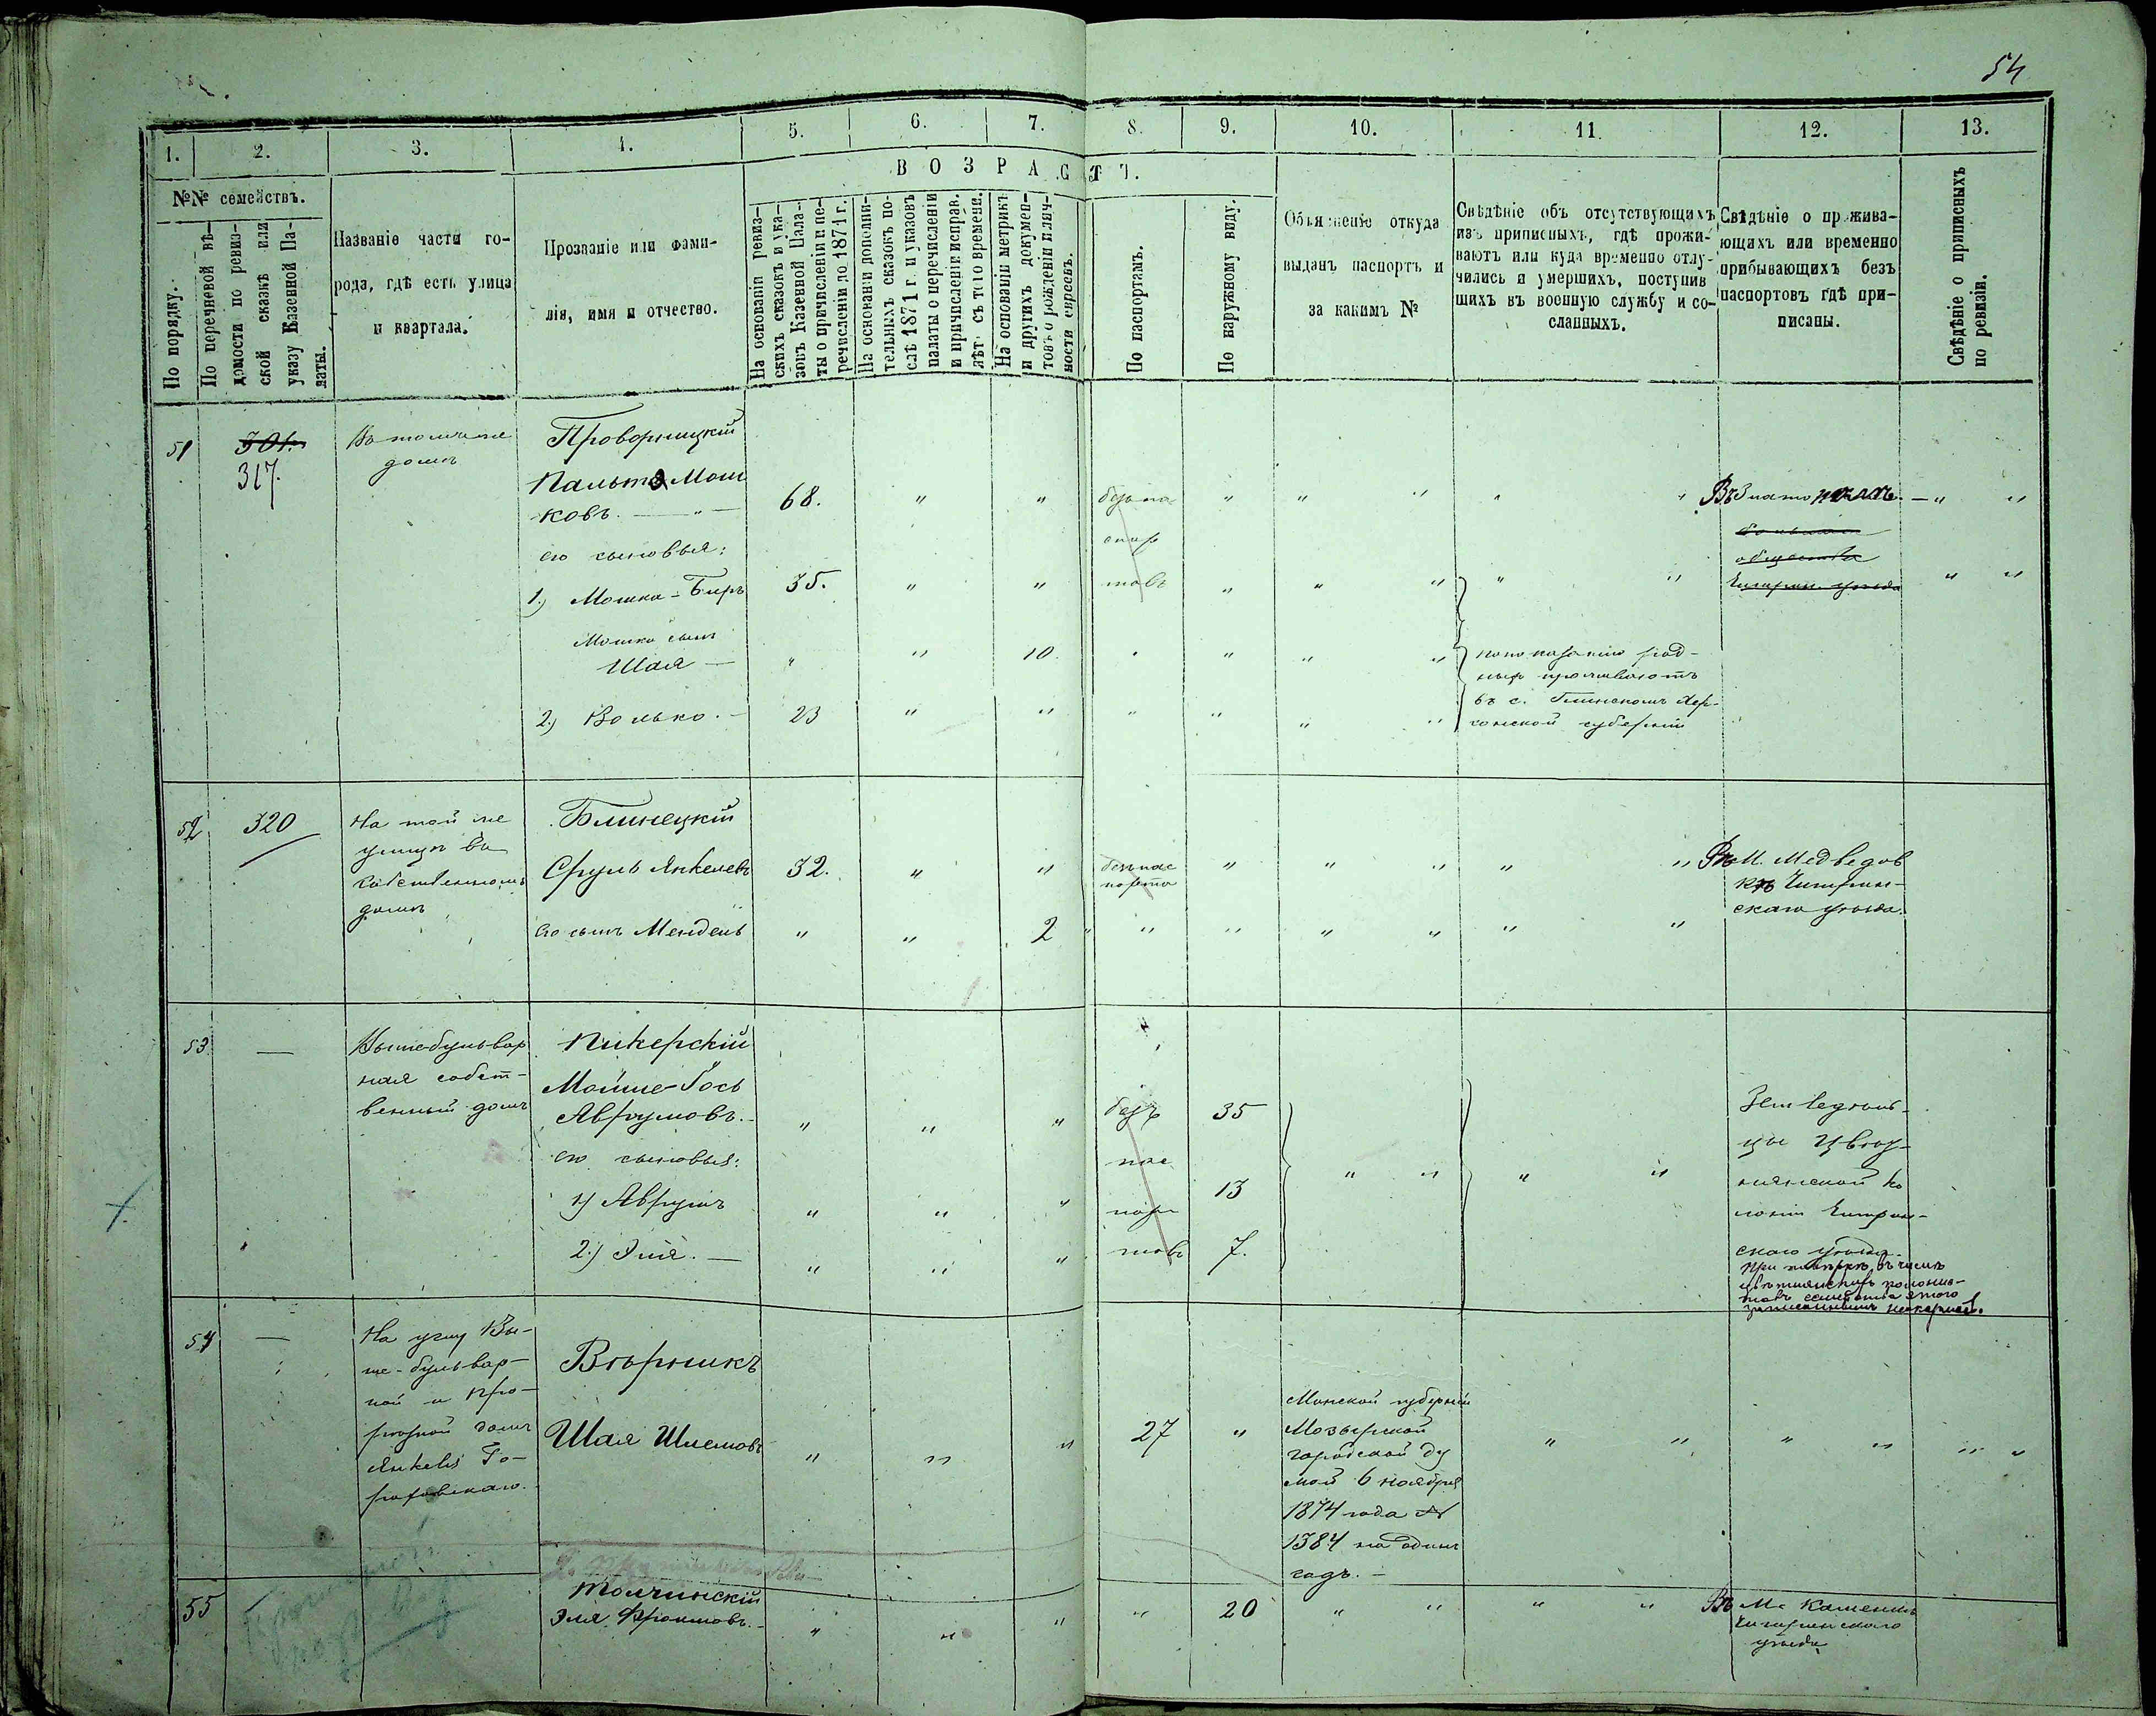 54
1. 2. 3. 4. 5. 6. 7. 8. 9. 10. 11. 12. 13.
№№ семействъ.
По порядку.
По перечневой вѣ-
домости по ревиз-
ской сказкѣ или
указу Казенной Па-
латы.
Названіе части го-
рода, гдѣ есть улица
и квартала.
Прозваніе или фами-
лія, имя и отчество.
ВОЗРАСТЪ.
На основаніи ревиз-
скихъ сказокъ и ука-
зовъ Казенной Пала-
ты о причисленіи и пе-
речисленіи до 1871 г.
На основаніи дополни-
тельныхъ сказокъ по-
слѣ 1871 г. и указовъ
палаты о перечисленіи
и причисленіи исправ.
лѣт. съ того времени.
На основаніи метрикъ
и другихъ докумен-
товъ о рожденіи и лич-
ности евреевъ.
По паспортамъ.
По наружному виду.
Объясненіе откуда
выданъ паспортъ и
за какимъ №
Свѣдѣніе объ отсутствующихъ
изъ приписныхъ, гдѣ прожи-
ваютъ или куда временно отлу-
чились и умершихъ, поступив
шихъ въ военную службу и со-
сланныхъ.
Свѣдѣніе о прожива-
ющихъ или временно
прибывающихъ безъ
паспортовъ гдѣ при-
писаны.
Свѣдѣніе о приписныхъ
по ревизіи.
51
301.
317.
Въ томъ же
домѣ
Мош
ковъ. — " —
68. " "
безъ па
спор
товъ
" " " " "
Въ Златополѣ. — " "
общества
Чигирин. уѣзда
его сыновья:
1.) Мошко-Беръ 35. " " " " " " " " "
Мошко сынъ
Шая — " " 10. " " " "
по показанію род-
ныхъ проживаютъ
въ с. Глинскомъ Хер-
сонской губерніи
2.) Волько. — 23 " " " " " "
52
320
На той же
улицѣ въ
собственномъ
домѣ
Блинецкій
Сруль Янкелевъ 32. " "
безъ пас
порта
" " " " "
Въ М. Медвѣдов
кѣ Чигирин-
скаго уѣзда.
его сынъ Мендель " " 2 " " " " " "
53
—
Вышебульвар
ная собст-
венный домъ
Пикерскій
Мойше-Гось
Аврумовъ. — " " "
безъ
пас
пор
товъ
35
его сыновья:
1) Аврумъ " " " 13 " " " "
2.) Эля. — " " " 7.
Земледѣль-
цы
ской ко
лоніи Чигрин-
скаго уѣзда.
54
—
На углу Вы-
ше-бульвар-
ной и Про-
рѣзной домъ
Янкеля Го-
роховскаго.
Шая Шлемовъ " " " 27 "
Минской губерніи
Мозырской
городской Ду
мой 6 ноября
1874 года №
1384 на одинъ
годъ. —
" " " " " "
55
Толчинскій
Эля Фроимовъ. — " " " " 20 " " " "
Въ М. Каменкѣ
Чигиринскаго
уѣзда